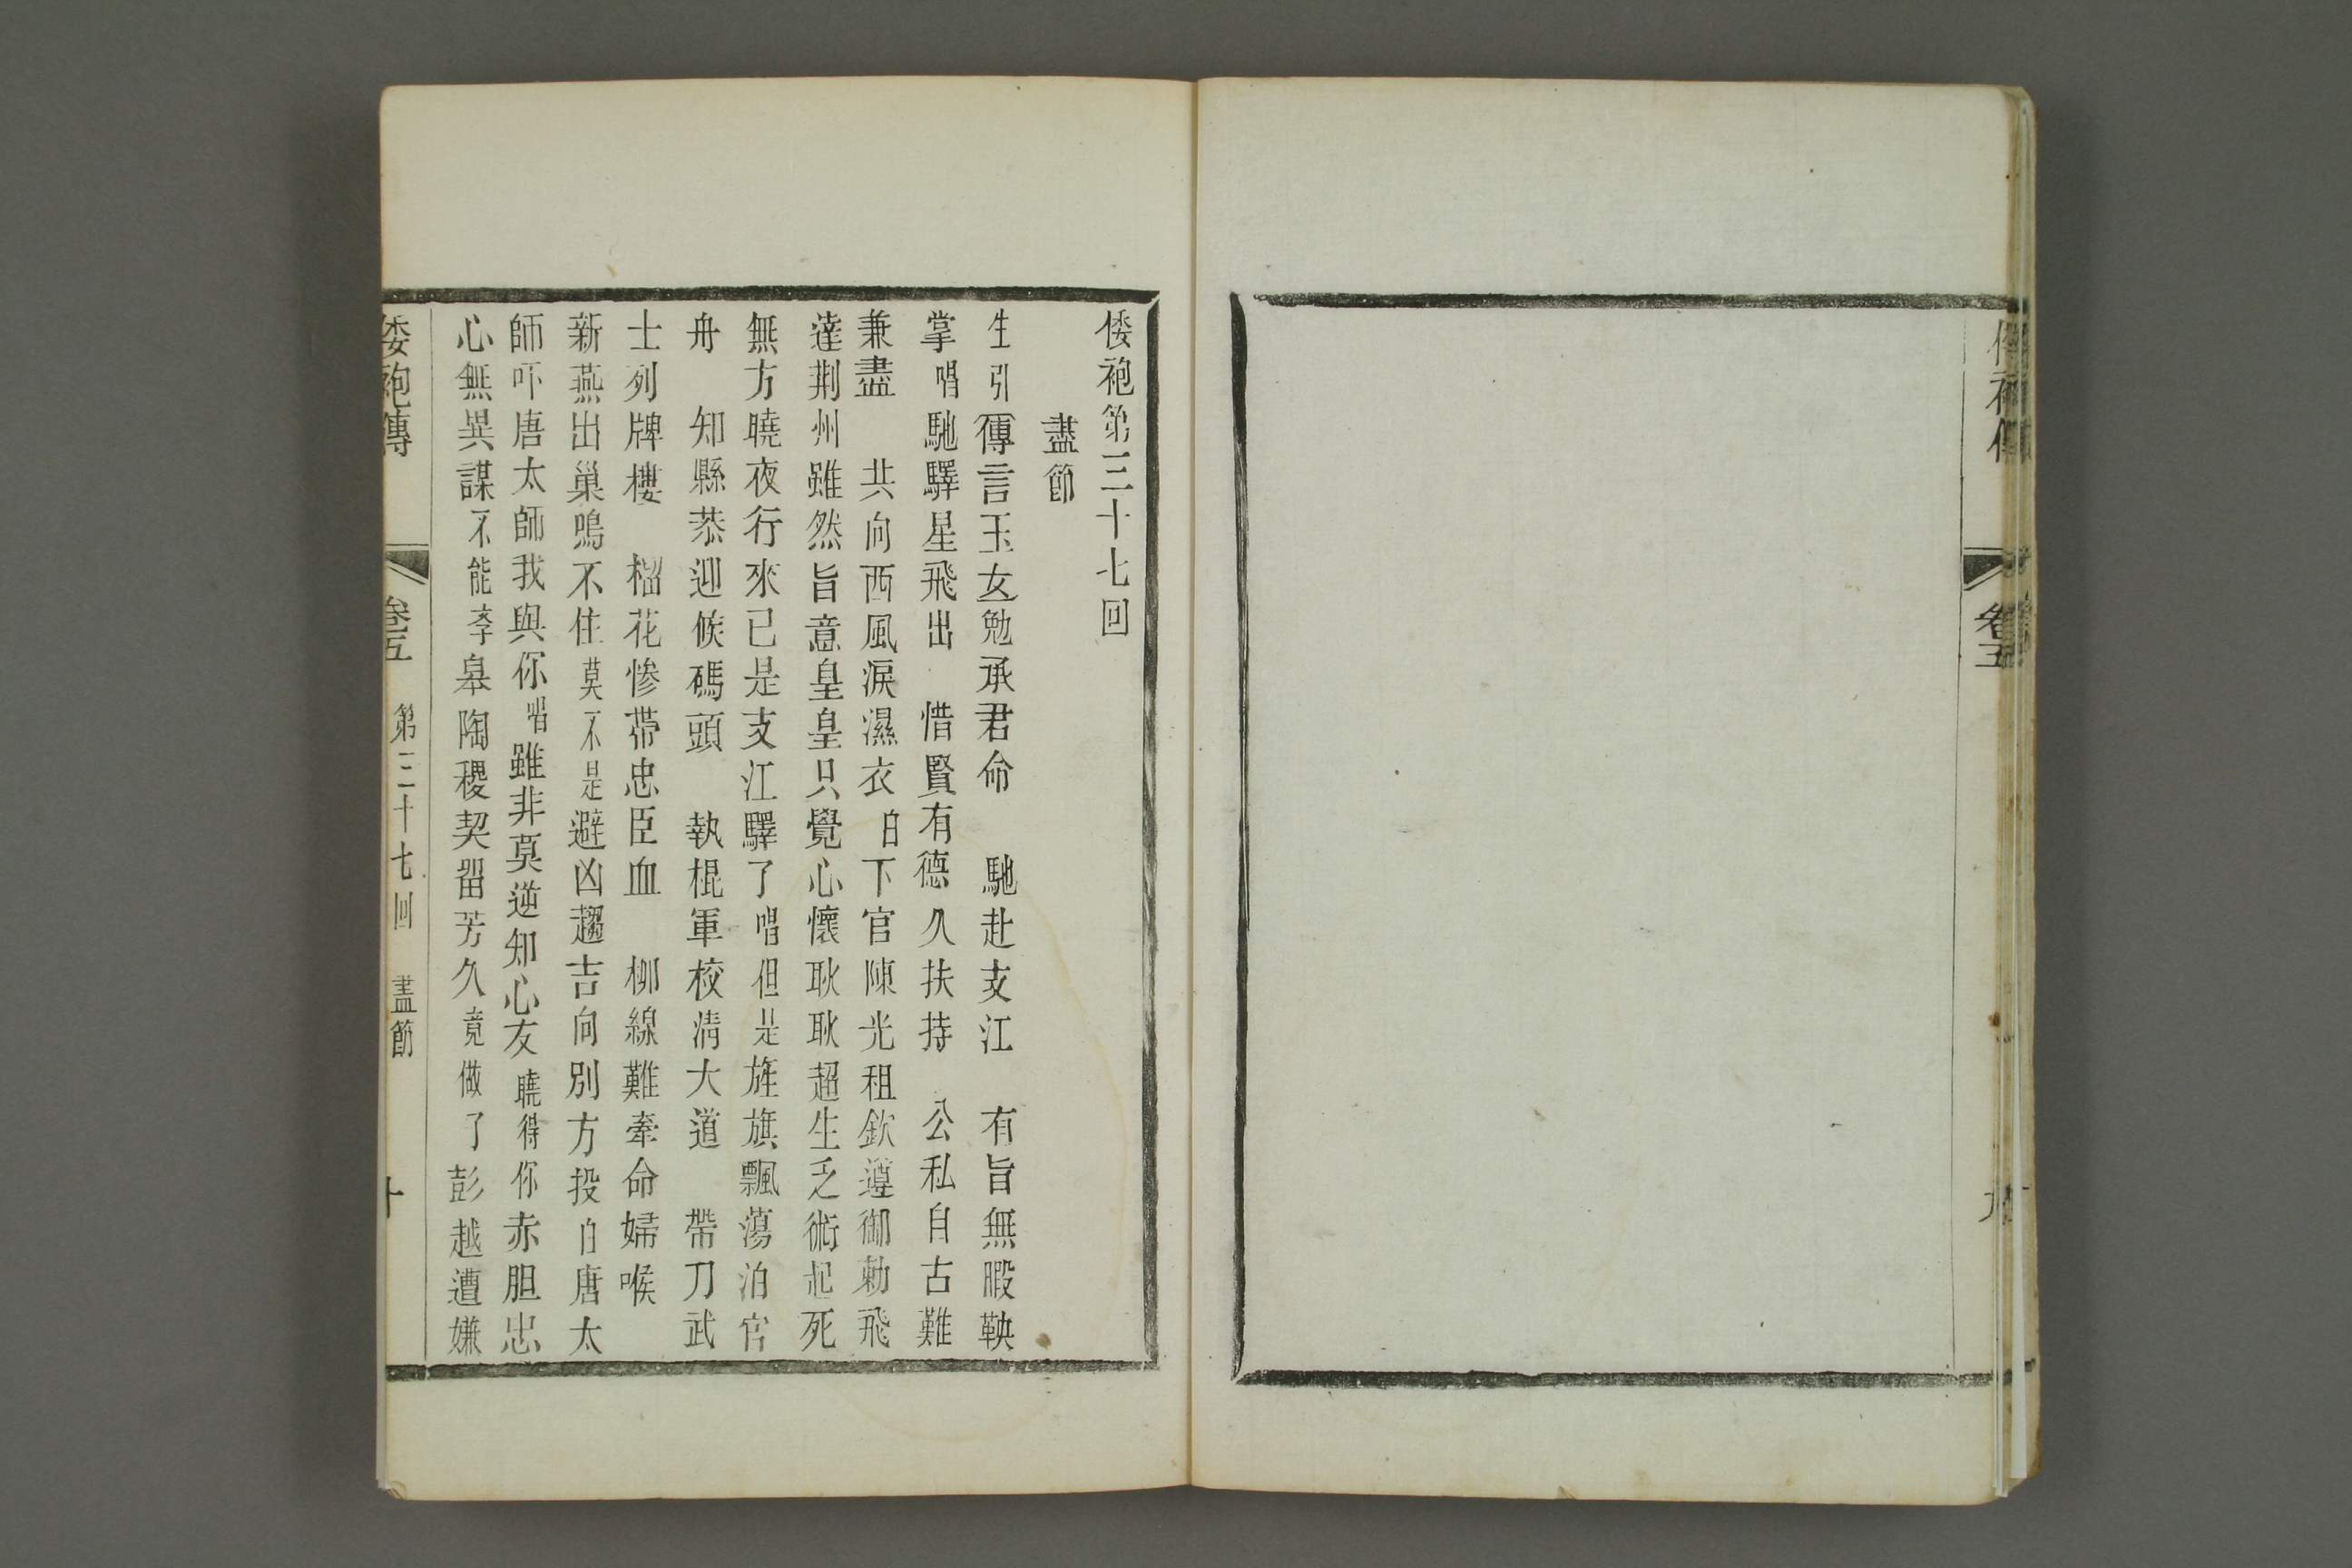 卷五
倭袍第三十七回
盡節
生引傳言玉女勉承君命　馳赴支江　有旨無暇鞅
掌唱馳驛星飛出　惜賢有德久扶持　公私自古難
兼盡　共向西風淚濕衣白下官陳光祖欽遵御勅飛
達荆州雖然旨意皇皇只覺心懷耿耿超生乏術起死
無方曉夜行來已是支江驛了唱但是旌旗飄蕩泊官
舟　知縣恭迎候碼頭　執棍軍校清大道　帶刀武
士列牌樓　榴花慘帶忠臣血　柳線難牽命婦喉
新燕出巢鳴不住莫不是避凶趨吉向別方投白唐太
師吓唐太師我與你唱雖非莫逆知心友曉得你赤胆忠
心無異謀不能李皋陶稷契留芳久竟做了彭越遭嫌
倭袍傳　卷五　第三十七回　盡節　十